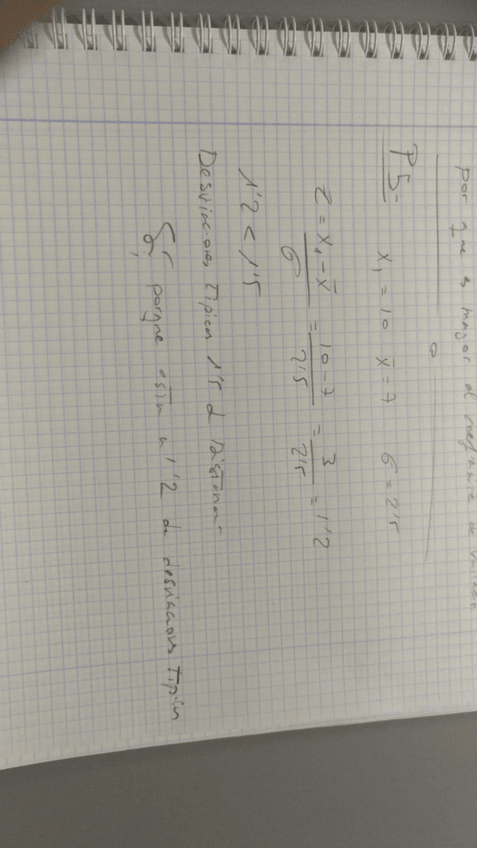 por que es mayor el coeficiente de variación
P5= x₁ = 10 x̄ = 7 σ = 2'5
z = x₁ - x̄ / σ = 10 - 7 / 2'5 = 3 / 2'5 = 1'2
1'2 < 1'5
Desviaciones Típicas 1'5 d
Sí, porque está a 1'2 de desviaciones Típicas